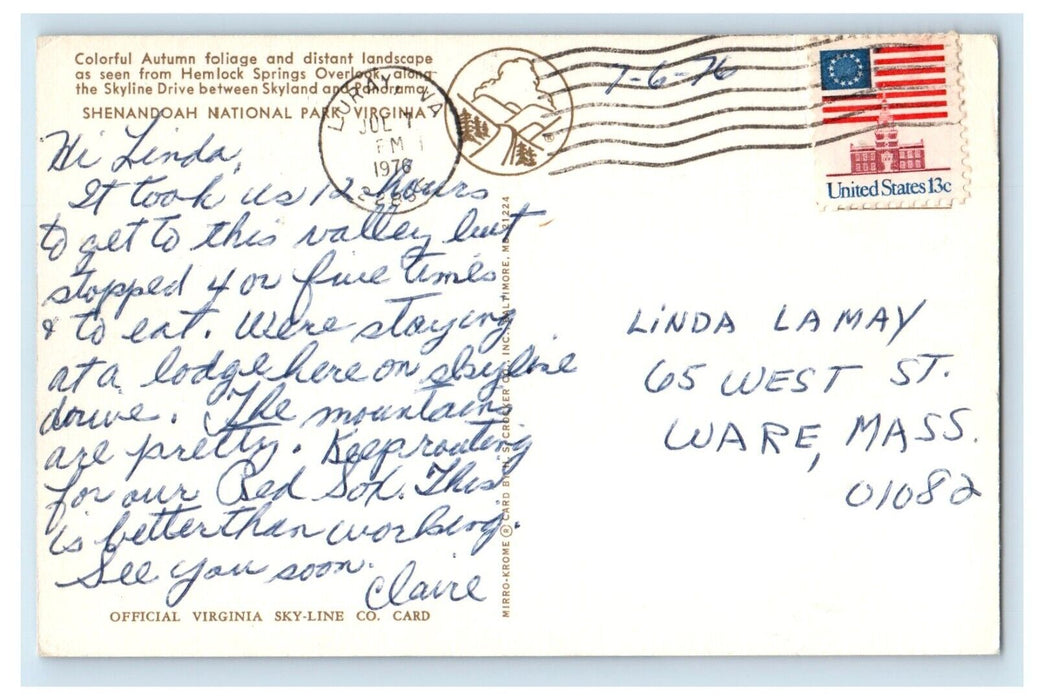 Colorful Autumn foliage and distant landscape
as seen from Hemlock Springs Overlook, along
the Skyline Drive between Skyland and Panorama,
SHENANDOAH NATIONAL PARK, VIRGINIA
LURAY, VA
JUL 7
PM
1976
7-6-76
United States 13c
Hi Linda,
It took us 12 hours
to get to this valley but
stopped 4 or five times
& to eat. Were staying
at a lodge here on skyline
drive. The mountains
are pretty. Keep routing
for our Red Sox. This
is better than working.
See you soon.
Claire
LINDA LAMAY
65 WEST ST.
WARE, MASS.
01082
MIRRO-KROME ® CARD BY H. S. CROCKER CO., INC. BALTIMORE, MD. 21224
OFFICIAL VIRGINIA SKY-LINE CO. CARD